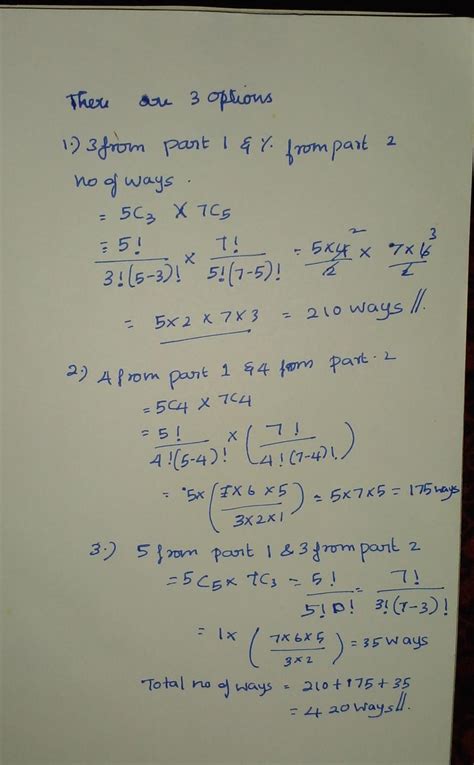 There are 3 options
1.) 3 from part 1 & % from part 2
no of ways .
= 5C3 X 7C5
= 5! / 3!(5-3)! × 7! / 5!(7-5)! = 5×4 2 / 2 × 7×6 3 / 2
= 5×2 × 7×3 = 210 ways //.
2.) 4 from part 1 & 4 from part 2
= 5C4 × 7C4
= 5! / 4!(5-4)! × ( 7! / 4!(7-4)! )
= 5× ( 7×6×5 / 3×2×1 ) = 5×7×5 = 175 ways
3.) 5 from part 1 & 3 from part 2
= 5C5 × 7C3 = 5! / 5! 0! = 7! / 3!(7-3)!
= 1× ( 7×6×5 / 3×2 ) = 35 ways
Total no of ways = 210+175+35
= 420 ways //.